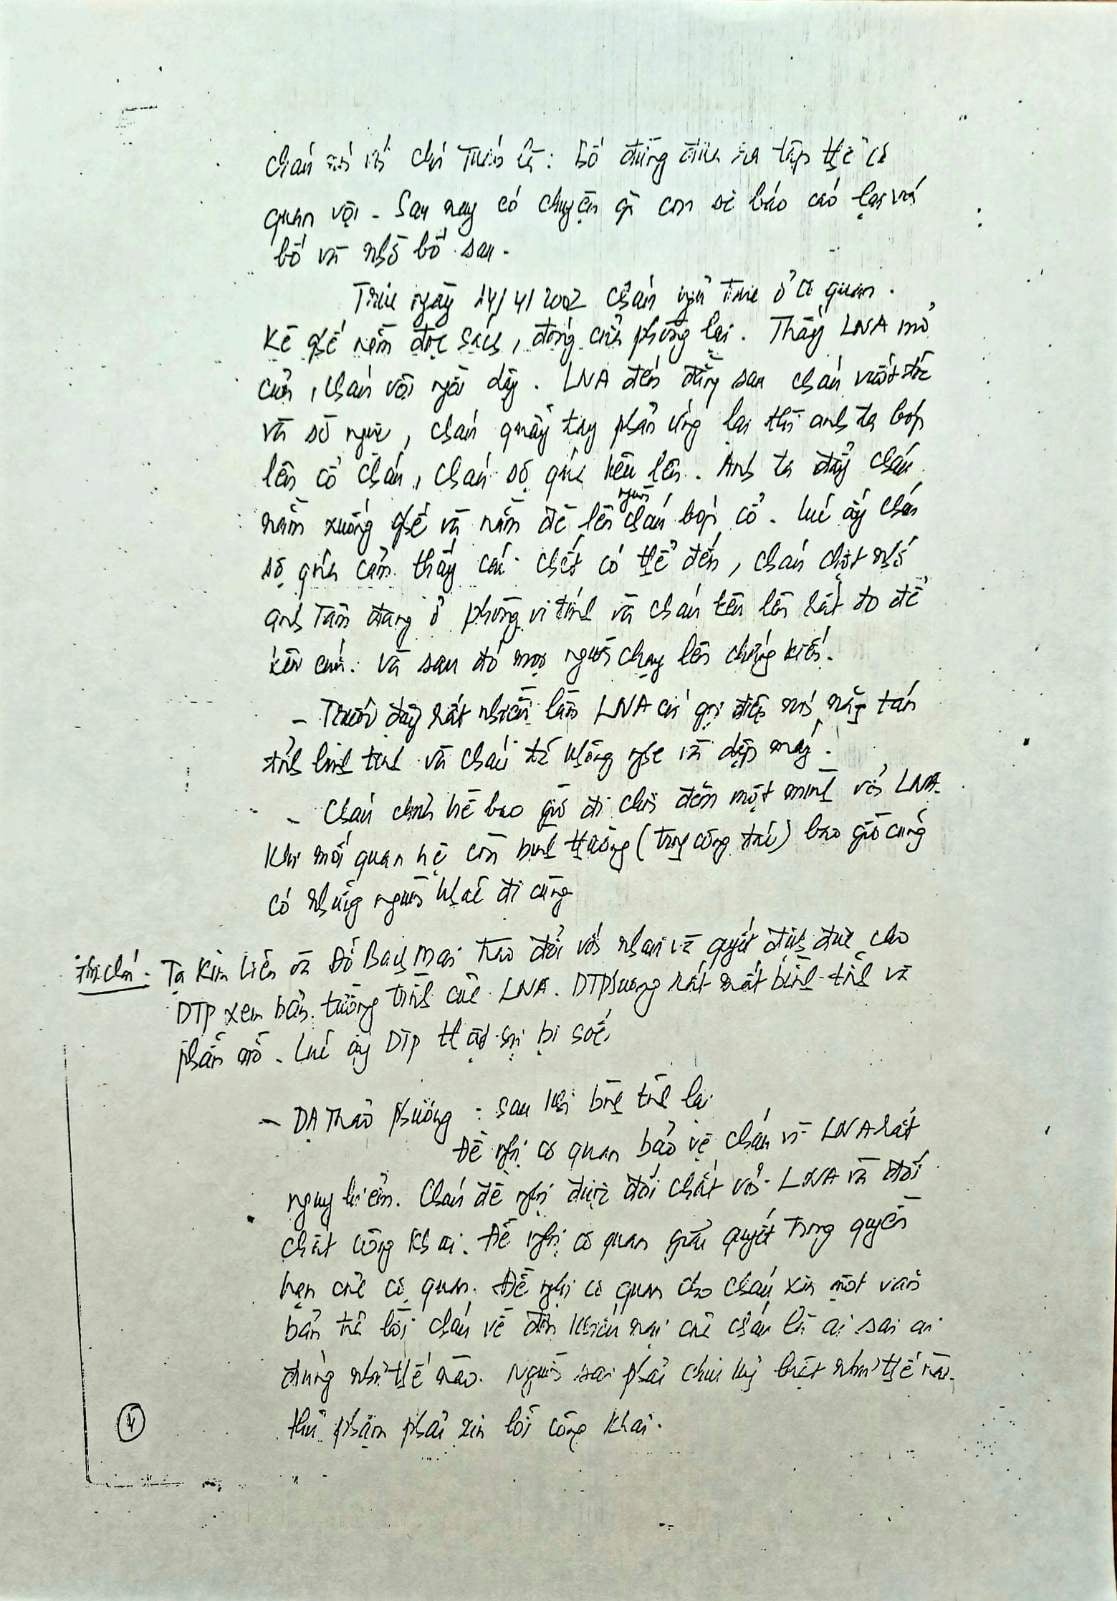 cháu nói với chú Tuấn là: bố đừng đưa ra tập thể cơ
quan vội - Sau này có chuyện gì con sẽ báo cáo lại với
bố và nhờ bố sau.
Trưa ngày 24/4/2002 cháu ngủ trưa ở cơ quan.
Kê ghế nằm đọc sách, đóng cửa phòng lại. Thấy LNA mở
cửa, cháu vội ngồi dậy. LNA đến đằng sau cháu vuốt tóc
và sờ ngực, cháu quay tay phản ứng lại thì anh ta bóp
lên cổ cháu, cháu sợ quá kêu lên. Anh ta đẩy cháu
nằm xuống ghế và nằm đè lên người cháu bóp cổ. Lúc ấy cháu
sợ quá cảm thấy cái chết có thể đến, cháu chợt nhớ
anh Tâm đang ở phòng vi tính và cháu kêu lên rất to để
kêu cứu. Và sau đó mọi người chạy lên chứng kiến.
- Trước đây rất nhiều lần LNA cứ gọi điện nói năng tán
tỉnh linh tinh và cháu đã không nghe và dập máy.
- Cháu chưa hề bao giờ đi chơi đêm một mình với LNA.
Khi mối quan hệ còn bình thường (trong công tác) bao giờ cũng
có những người khác đi cùng
Ghi chú: Tạ Kim Liên và Đỗ Bạch Mai trao đổi với nhau và quyết định đưa cho
DTP xem bản tường trình của LNA. DTPhương rất mất bình tĩnh và
phẫn nộ. Lúc ấy DTP thật sự bị sốc.
- DạThảo Phương: sau khi bình tĩnh lại
Đề nghị cơ quan bảo vệ cháu vì LNA rất
nguy hiểm. Cháu đề nghị được đối chất với LNA và đối
chất công khai. Đề nghị cơ quan giải quyết trong quyền
hạn của cơ quan. Đề nghị cơ quan cho cháu xin một văn
bản trả lời cháu về đơn khiếu nại của cháu là ai sai ai
đúng như thế nào. Người sai phải chịu kỷ luật như thế nào.
thủ phạm phải xin lỗi công khai.
4